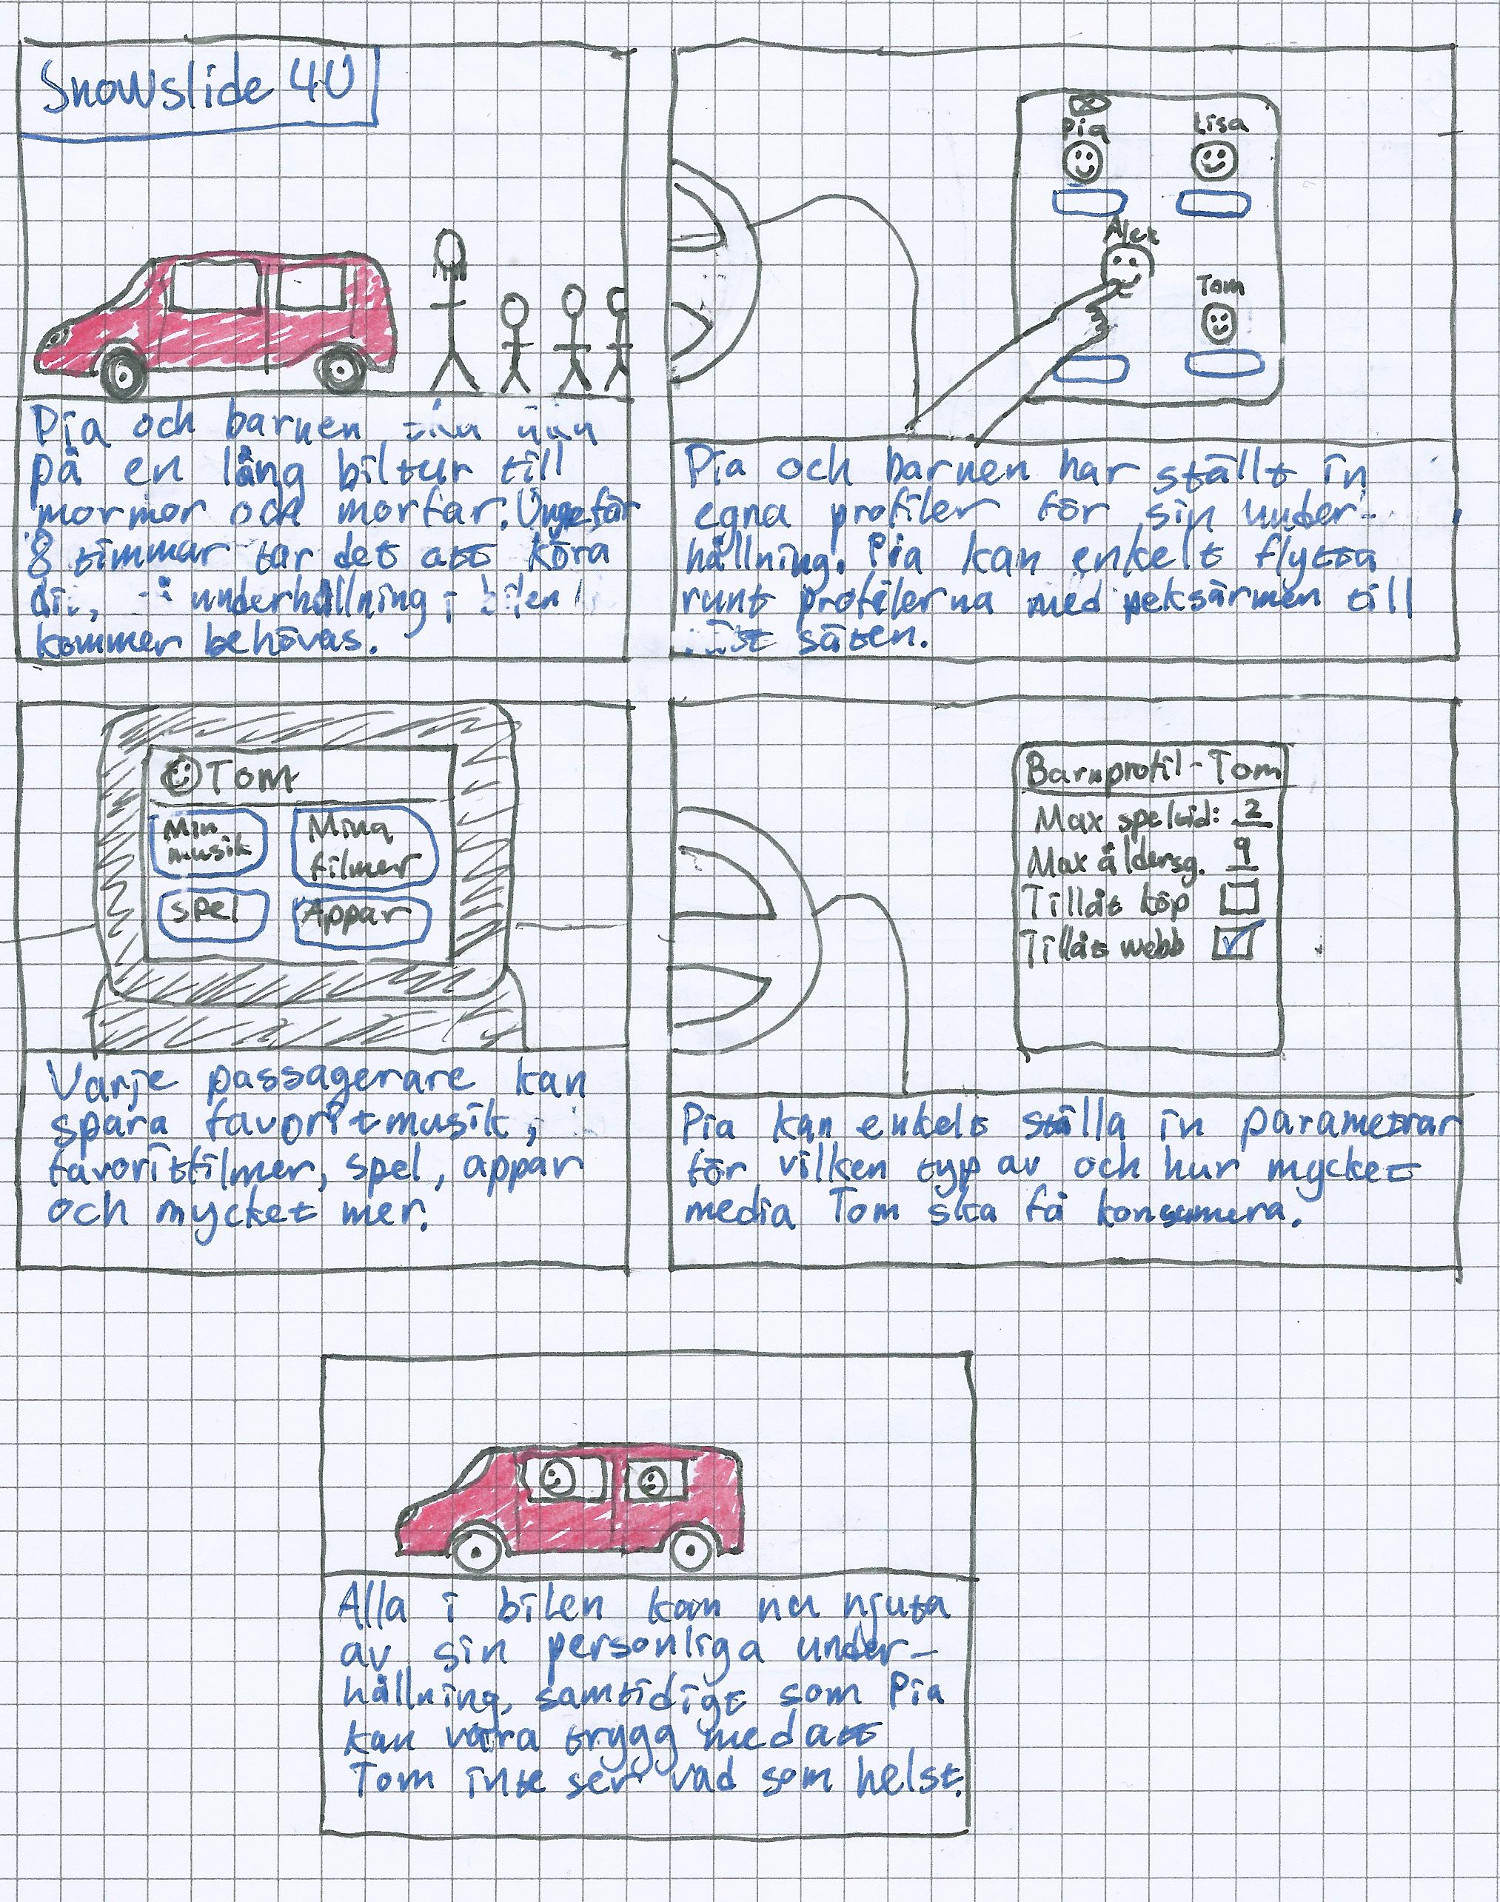 Snowslide 4U
Pia och barnen
på en lång biltur till
mormor och morfar. Ungefär
8 timmar tar det att köra
underhållning i bilen
kommer behövas.
Pia
Lisa
Alex
Tom
Pia och barnen har ställt in
egna profiler för sin under-
hållning. Pia kan enkelt flytta
runt profilerna med peksärmen till
säten.
Tom
Min
musik
Mina
filmer
Spel
Appar
Varje passagerare kan
spara favoritmusik,
favoritfilmer, spel, appar
och mycket mer.
Barnprofil - Tom
Max speltid: 2
Max åldersg. 9
Tillåt köp
Tillåt webb
Pia kan enkelt ställa in parametrar
för vilken typ av och hur mycket
media Tom ska få konsumera.
Alla i bilen kan nu njuta
av sin personliga under-
hållning, samtidigt som Pia
kan vara trygg med att
Tom inte ser vad som helst.